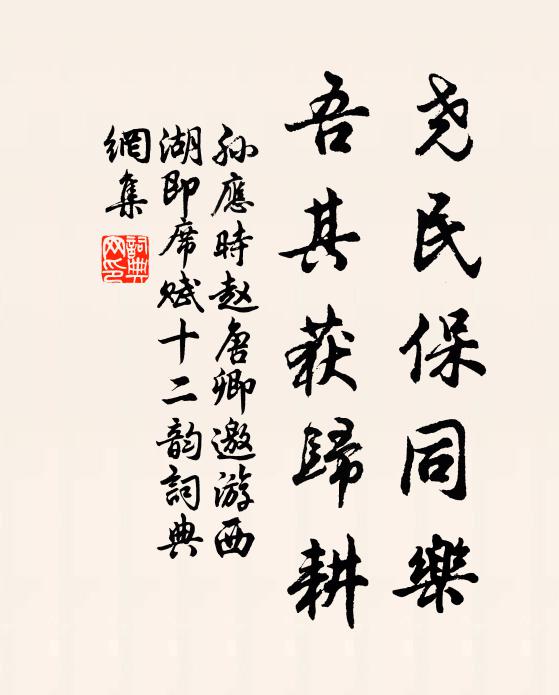 尧民保同樂
吾其获歸耕
孙應時赵唐卿邀游西
湖即席赋十二韵詞典
網集
詞典網印